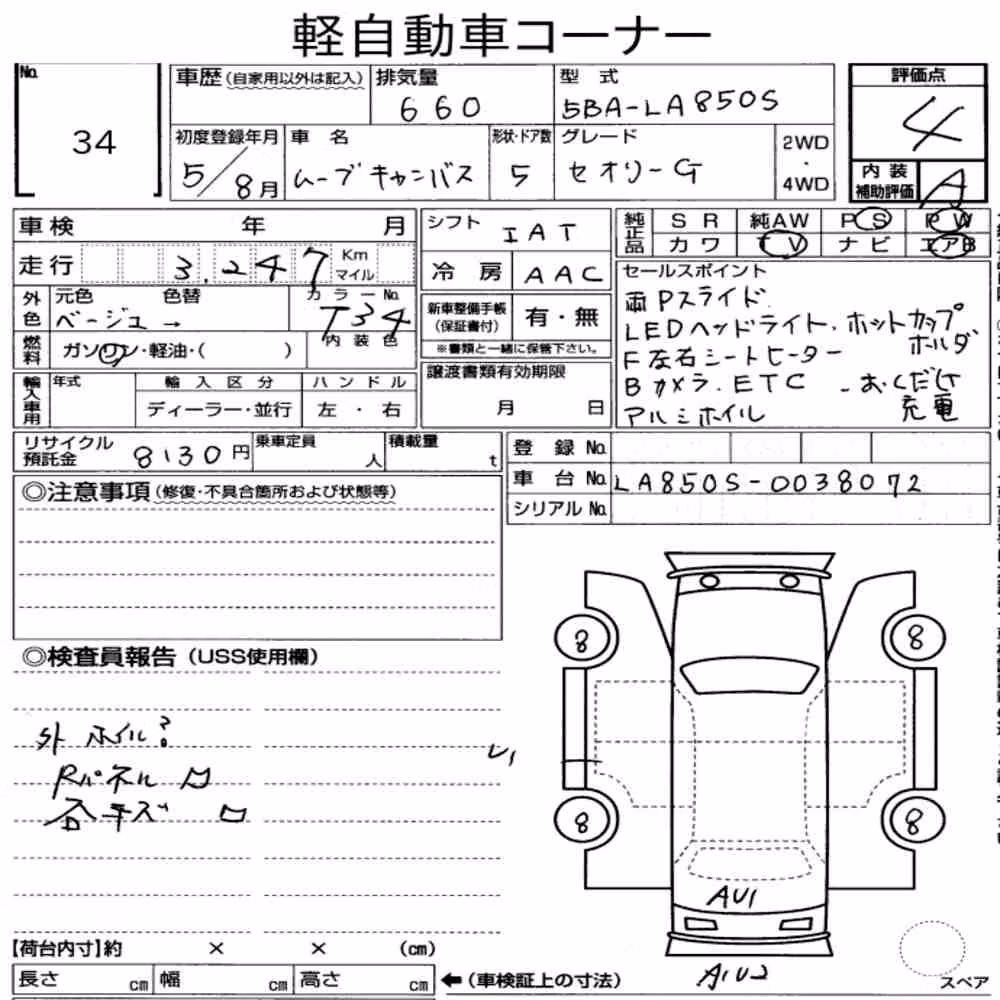 軽自動車コーナー
No. 34
車歴(自家用以外は記入)
排気量 660
型式 5BA-LA850S
評価点 4
初度登録年月 5/8月
車名 ムーブキャンバス
形状・ドア数 5
グレード セオリーG
2WD・4WD
内装補助評価 A
車検 年 月
走行 3,247 Km マイル
シフト IAT
冷房 AAC
純正品 SR 純AW PS PW
カワ TV ナビ エアB
外色 元色 色替 カラーNo.
ベージュ → T34
内装色
燃料 ガソリン・軽油・( )
新車整備手帳(保証書付) 有・無
※書類と一緒に保管下さい。
セールスポイント
両Pスライド
LEDヘッドライト・ホットカップホルダ
F左右シートヒーター
Bカメラ. ETC . おくだけ充電
アルミホイル
輸入車用 年式 輸入区分 ハンドル
ディーラー・並行 左・右
譲渡書類有効期限
月 日
リサイクル預託金 8130円
乗車定員 人
積載量 t
登録No.
車台No. LA850S-0038072
シリアルNo.
◎注意事項(修復・不具合箇所および状態等)
◎検査員報告(USS使用欄)
外 ホイル?
Rパネル
キズ
8 8
8 8
AU1
A1U2
スペア
【荷台内寸】約 × × (cm)
長さ cm 幅 cm 高さ cm ←(車検証上の寸法)